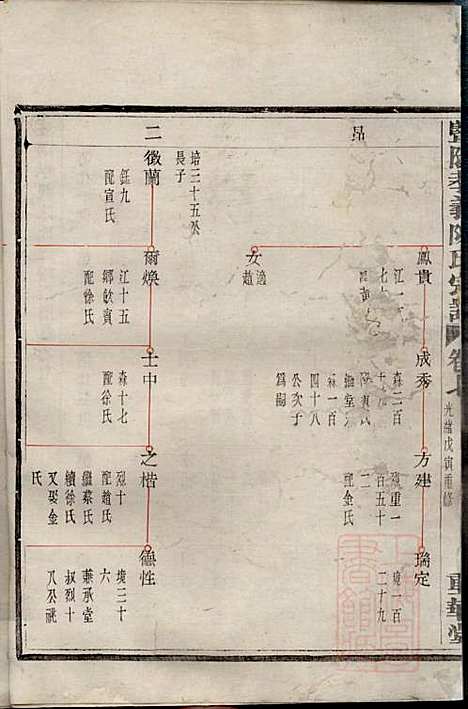 暨陽孝義陳氏宗譜 卷七
光緒戊寅重修
重華堂
昂
鳳貴
江一
七十
成秀
森二百
森一百
四十八
公次子
爲嗣
方建
境重一
百五十
二
配金氏
瑞定
境一百
二十九
女
適趙
培三十五公
長子
二
徵蘭
鈺九
配宣氏
爾煥
江十五
鄉飲賓
配徐氏
士中
森十七
配徐氏
之楷
烈十
配趙氏
繼蔡氏
續徐氏
又娶金
氏
德性
境三十
六
兼承堂
叔烈十
八公祧